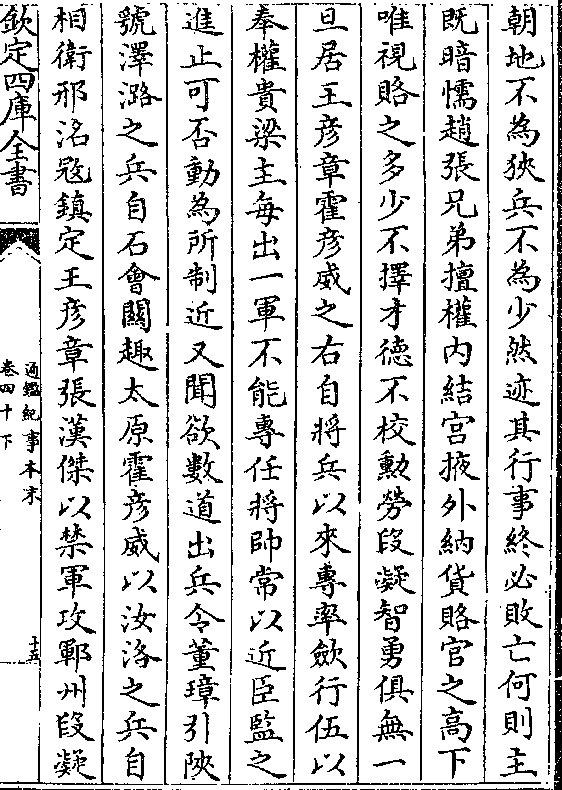 朝地不為狹兵不為少然迹其行事終必敗亡何則主
既暗懦趙張兄弟擅權内結宫掖外納貨賂官之髙下
唯視賂之多少不擇才德不校勲勞段凝智勇俱無一
旦居王彦章霍彦威之右自將兵以來專率斂行伍以
奉權貴梁主每出一軍不能專任將帥常以近臣監之
進止可否動為所制近又聞欲數道出兵令董璋引陜
虢澤潞之兵自石會關趣太原霍彦威以汝洛之兵自
相衛邢洺㓂鎮定王彦章張漢傑以禁軍攻鄆州段凝
欽定四庫全書
通鑑紀事本末
卷四十下
十五